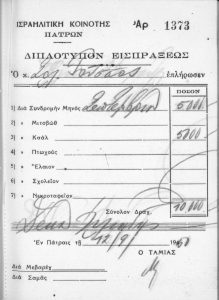 ΙΣΡΑΗΛΙΤΙΚΗ ΚΟΙΝΟΤΗΣ
ΠΑΤΡΩΝ
Ἀρ 1373
ΔΙΠΛΟΤΥΠΟΝ ΕΙΣΠΡΑΞΕΩΣ
Ὁ κ. ἐπλήρωσεν
ΠΟΣΟΝ
1) Διὰ Συνδρομὴν Μηνὸς Σεπτεμβρίου 5000
2) » Μιτσβὼθ
3) » Κσὰλ 5000
4) » Πτωχοὺς
5) » Ἔλαιον
6) » Σχολεῖον
7) » Νεκροταφεῖον
Σύνολον Δραχ. 10,000
Δέκα Χιλιάδες
Ἐν Πάτραις τῇ 12/9/
Ο ΤΑΜΙΑΣ
Διὰ Μεβαρὲχ
Διὰ Σαμὰς